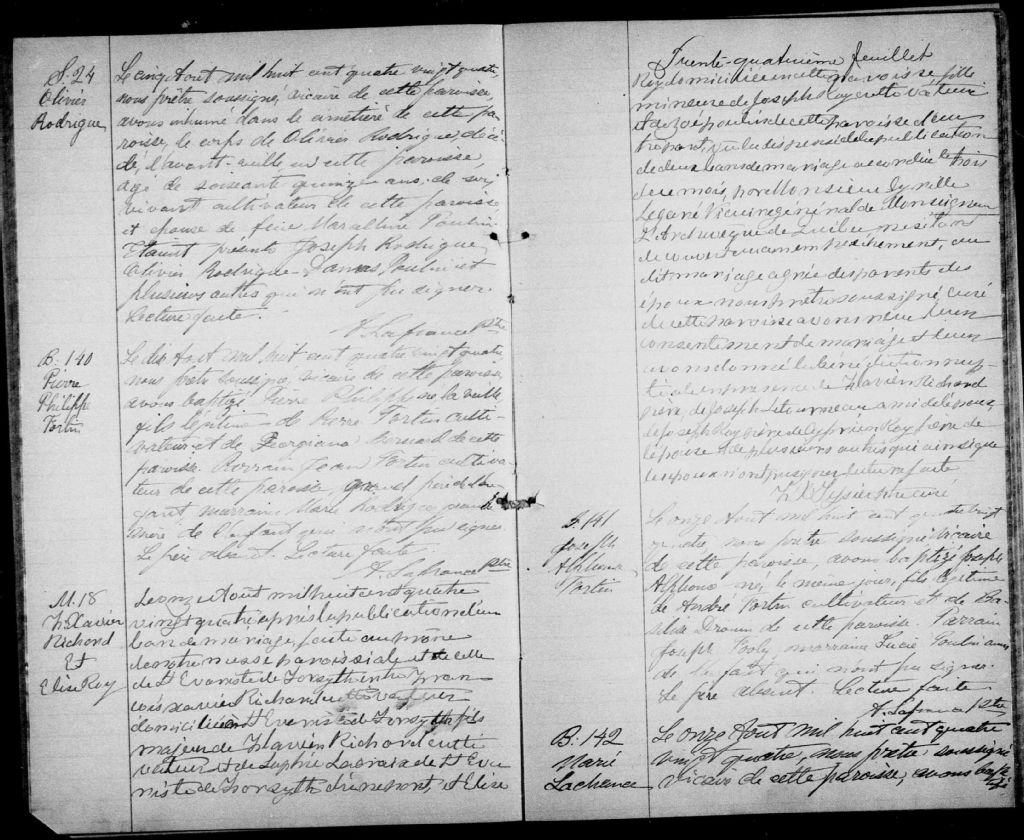 S. 24
Olivier
Rodrigue
Le cinq Aout mil huit cent quatre vingt quatre
nous prêtre soussigné, vicaire de cette paroisse,
avons inhumé dans le cimetière de cette pa
roisse, le corps de Olivier Rodrigue, décé
dé, l'avant-veille en cette paroisse,
agé de soixante quinze ans, de son
vivant cultivateur de cette paroisse
et epoux de feue Poulin
Etaient présents Joseph Rodrigue,
Olivier Rodrigue Damas Poulin et
plusieurs autres qui n'ont pu signer
Lecture faite.
A. Lafrance Ptre
B. 140
Pierre
Philippe
Fortin
Le dix Aout mil huit cent quatre vingt quatre
nous prêtre soussigné, vicaire de cette paroisse,
avons baptizé Pierre Philippe né la veille
fils légitime de Pierre Fortin culti
vateur et de Georgiana Bernard de cette
paroisse. Parrain Jean Fortin cultiva
teur de cette paroisse, grand père de l'en
fant marraine Marie Rodrigue grande
mère de l'enfant qui n'ont pu signer
Le père absent. Lecture faite.
A. Lafrance Ptre
M. 18
F. Xavier
Richard
Et
Elise Roy
Le onze Aout mil huit cent quatre
vingt quatre, après la publication d'un
ban de mariage, faite au prône
de notre messe paroissiale et de celle
de St Evariste de Forsyth entre Fran
cois Xavier Richard cultivateur
domicilié à St Evariste de Forsyth fils
majeur de Flavien Richard culti
vateur et de Sophie de St Eva
riste de Forsyth d'une part, et Elise
Trente-quatrième feuillet
Roy domiciliée en cette paroisse fille
mineure de Joseph Roy cultivateur
et de Zoé poulin de cette paroisse d'au
tre part, vu la dispense de la publication
de deux bans de mariage accordée le trois
de ce mois, par Monsieur Cyrille
Légaré Vicaire général de Monseigneur
L'Archevêque de Québec
au
dit mariage agrée des parents des
époux nous prêtre soussigné, curé
de cette paroisse avons reçu leur
consentement de mariage et leur
avons donné la bénédiction nup
tiale en presence de Flavien Richard
père, de Joseph Letourneau ami de l'époux,
de Joseph Roy père de Cyprien Roy frère de
l'épouse et de plusieurs autres qui ainsi que
les époux n'ont pu signer lecture faite
Ptre curé
B. 141
Joseph
Alphonse
Fortin
Le onze Aout mil huit cent quatre vingt
quatre nous prêtre soussigné vicaire
de cette paroisse, avons baptizé Joseph
Alphonse né, le même jour, fils légitime
de André Fortin cultivateur et de
Drouin de cette paroisse. Parrain
Joseph Poly, marraine Lucie Poulin
de l'enfant qui n'ont pu signer
Le père absent. Lecture faite
A. Lafrance Ptre
B. 142
Marie
Lachance
Le onze Aout mil huit cent quatre
vingt quatre, nous prêtre soussigné
vicaire de cette paroisse, avons bapti
zé